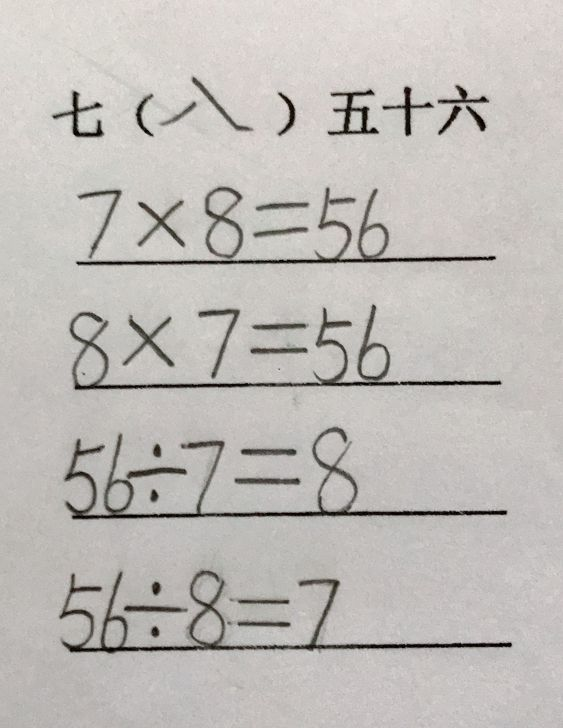 七（八）五十六
7×8=56
8×7=56
56÷7=8
56÷8=7